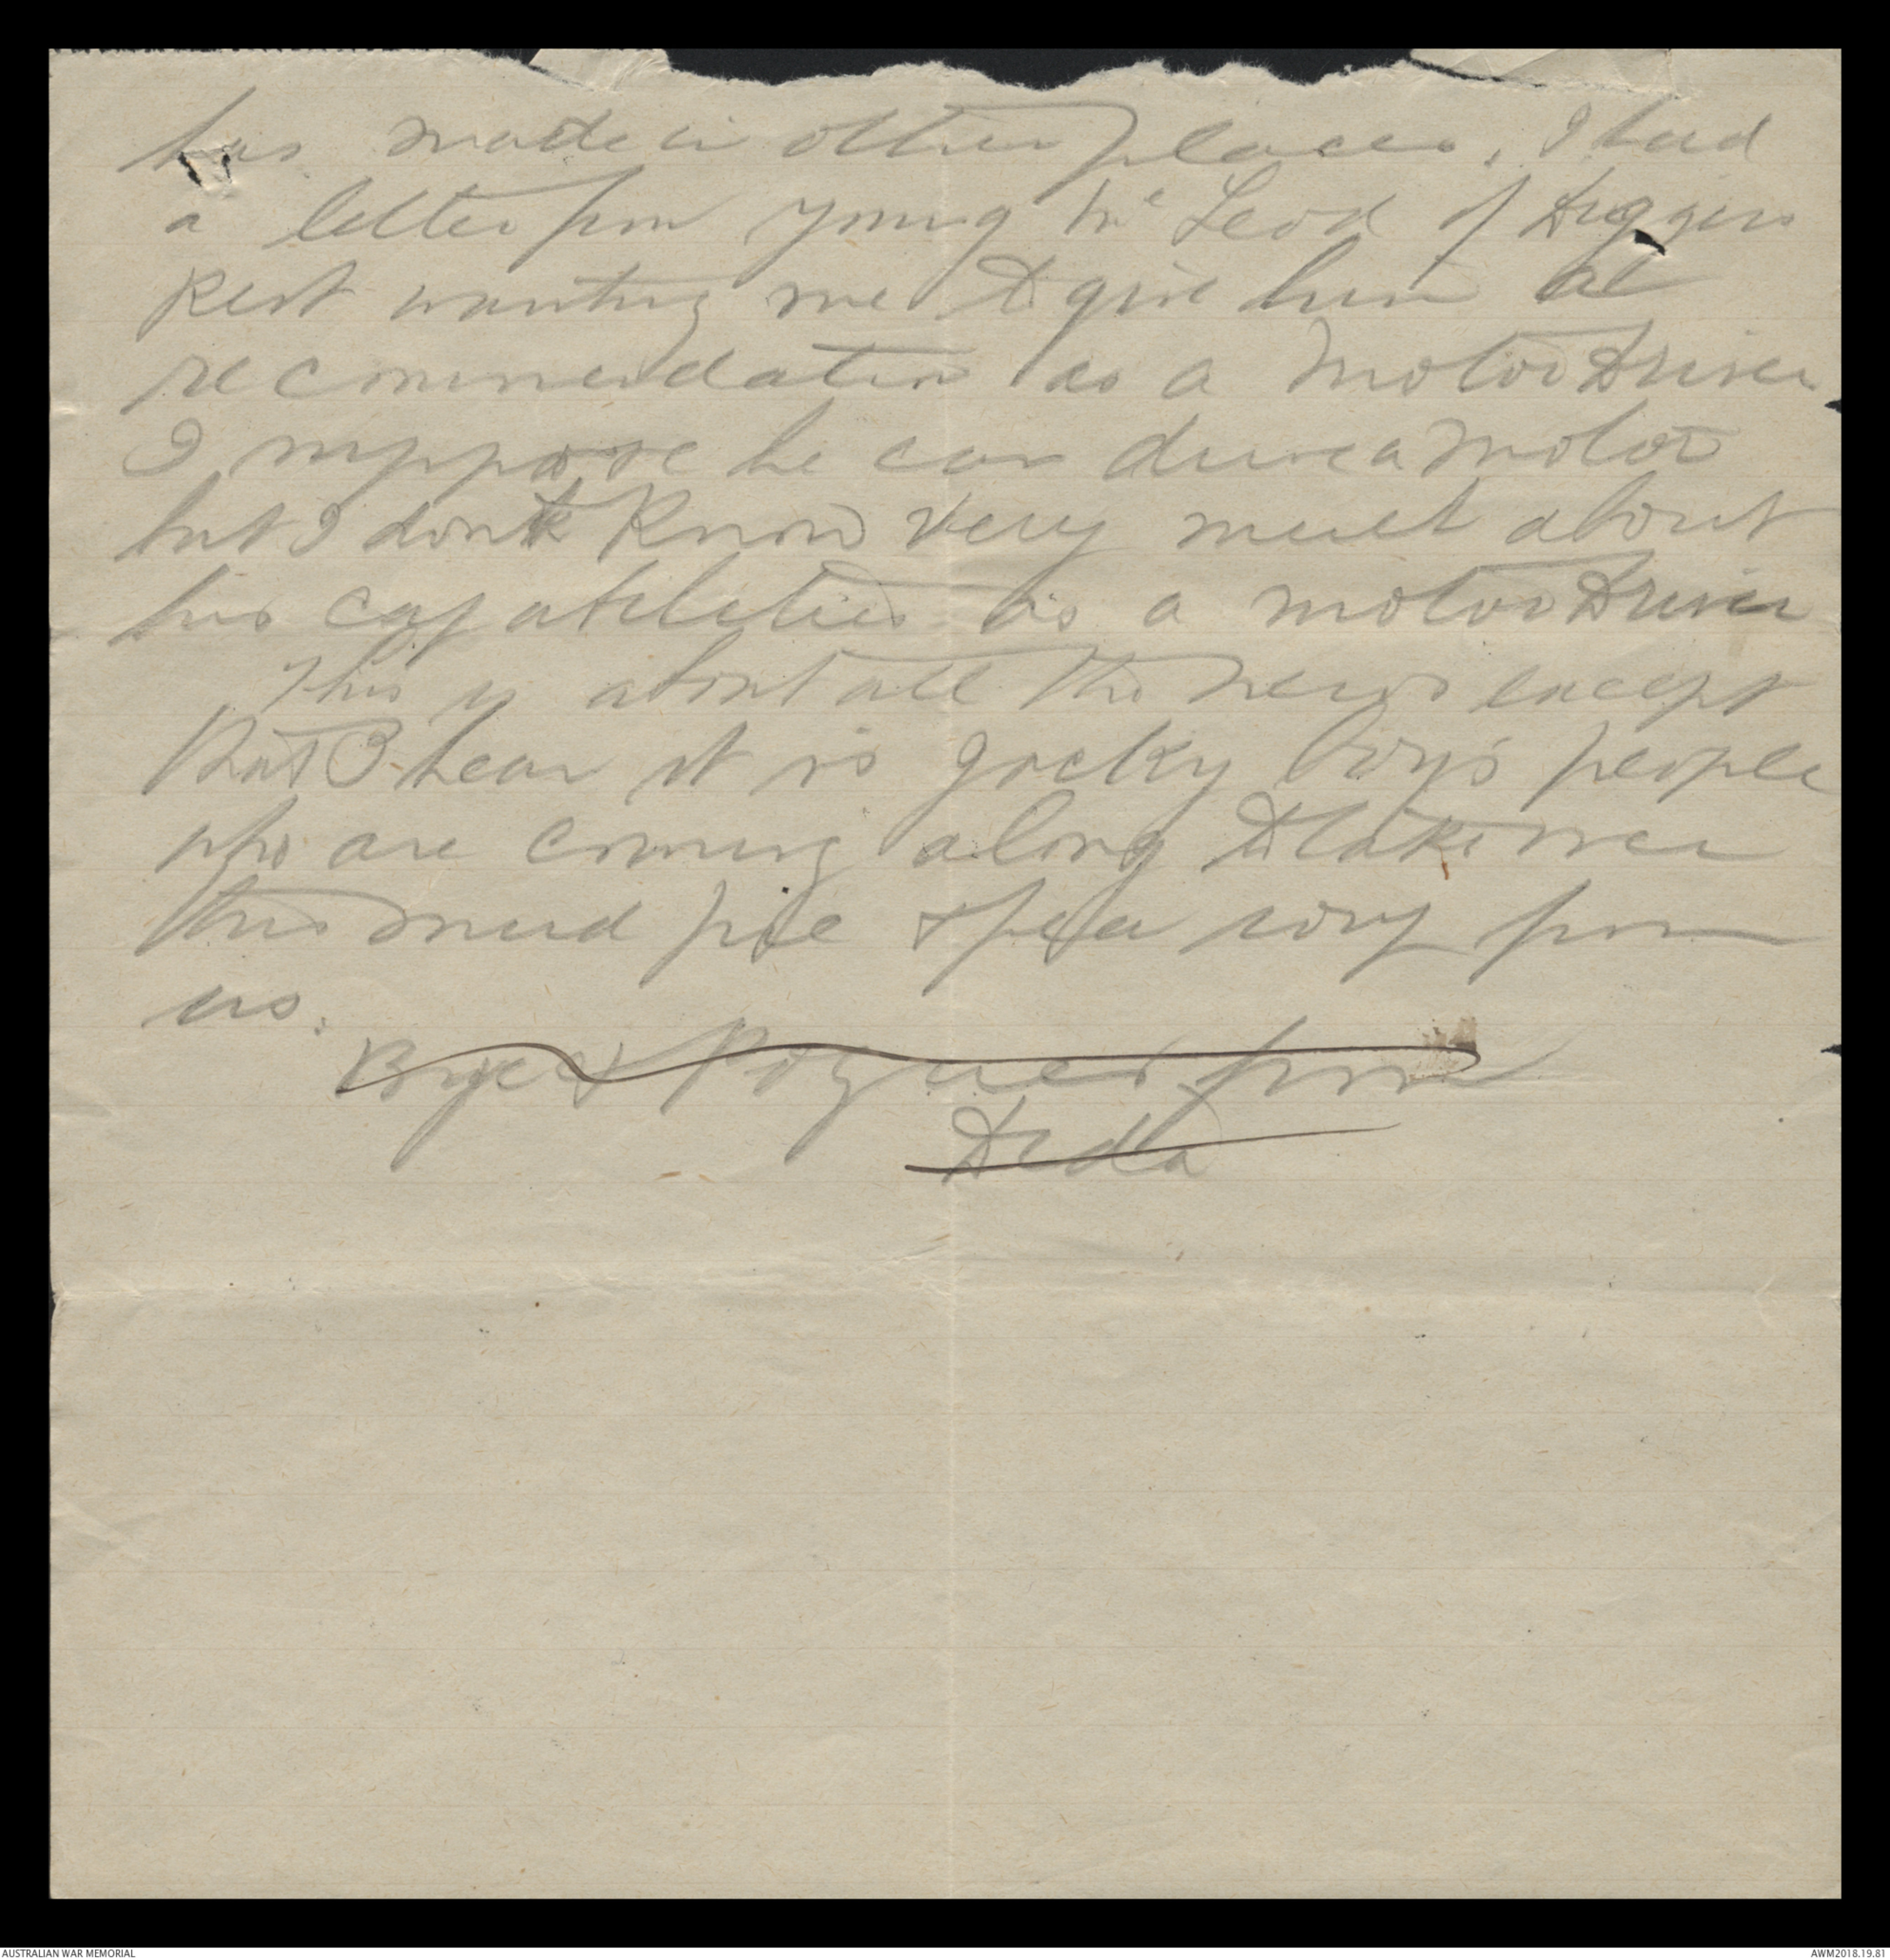 has made in other places. I had
a letter from young Mc Leod of Diggers
Rest wanting me to give him a
recommendation as a Motor Driver
I suppose he can drive a Motor
but I don't know very much about
his capabilities as a motor Driver
This is about all the news except
that I hear it is Jocky Boy's people
who are coming along to take over
this mud pie & pea soup from
us.
Bye & from
Deda
AUSTRALIAN WAR MEMORIAL
AWM2018.19.81